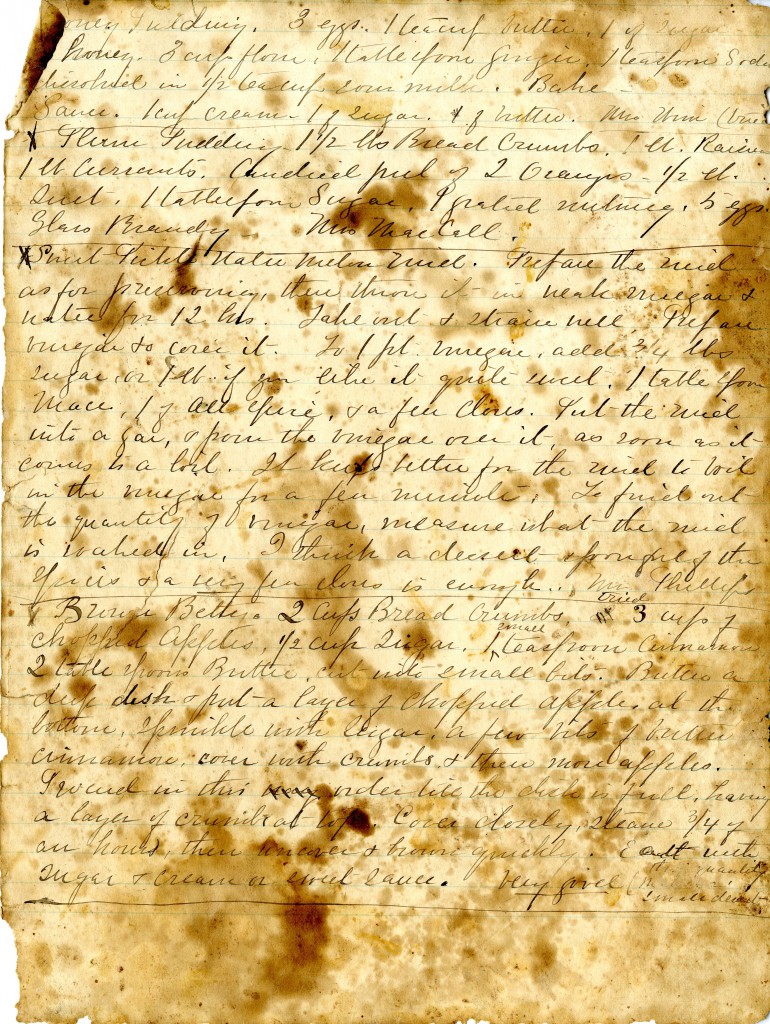 oney Pudding. 3 eggs. 1 teacup butter, 1 of sugar
honey. 3 cup flour, 1 tablespoon Ginger, 1 teaspoon Soda
dissolved in 1/2 teacup sour milk. Bake —
Sauce. 1 cup cream — 1 of Sugar. of butter. Mrs
X Plum Pudding 1 1/2 lbs Bread Crumbs. 1 lb. Raisins
1 lb Currants. Candied peel of 2 Oranges — 1/2 lb.
Suet. 1 tablespoon Sugar, 1 grated nutmeg. 5 eggs.
Glass Brandy Mrs MacCall.
X Sweet Pickle Water Melon Rind. Prepare the rind
as for preserving, then throw it in weak vinegar &
water for 12 hs. Take out & strain well. Prepare
vinegar to cover it. To 1 pt. vinegar, add 3/4 lbs
sugar, or 1 lb. if you like it quite sweet. 1 table spoon
Mace, 1 of All spice, & a few cloves. Put the rind
into a jar, & pour the vinegar over it, as soon as it
comes to a boil. It keeps better for the rind to boil
in the vinegar for a few minutes. To find out
the quantity of vinegar, measure what the rind
is soaked in. I think a dessert spoonful of the
spices & a very few cloves is enough. Mrs Phillips
Brown Betty. 2 Cups Bread Crumbs. tried 3 cups of
chopped Apples, 1/2 cup Sugar. 1 small teaspoon Cinnamon
2 table spoons Butter, cut into small bits. Butter a
deep dish & put a layer of chopped apples at the
bottom, sprinkle with sugar, a few bits of butter
cinnamon, cover with crumbs & then more apples.
Proceed in this order till the dish is full, having
a layer of crumbs at top. Cover closely, steam 3/4 of
an hour, then uncover & brown quickly. Eat with
Sugar & Cream or sweet Sauce. Very good quantity